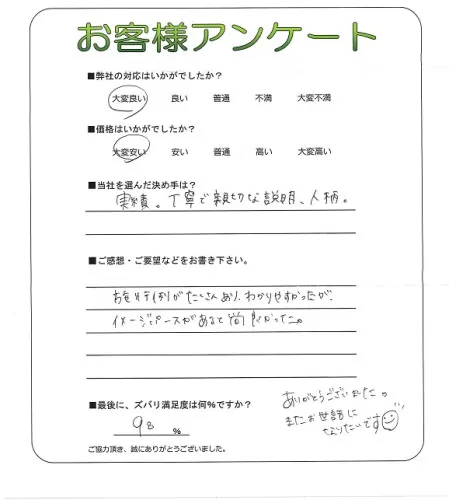 お客様アンケート
■弊社の対応はいかがでしたか？
大変良い 良い 普通 不満 大変不満
■価格はいかがでしたか？
大変安い 安い 普通 高い 大変高い
■当社を選んだ決め手は？
実績。丁寧で親切な説明、人柄。
■ご感想・ご要望などをお書き下さい。
お見リ予例がたくさんあり、わかりやすかったが、
イメージパースがあると尚良かった。
■最後に、ズバリ満足度は何%ですか？
98 %
ありがとうございました。
またお世話に
なりたいです
ご協力頂き、誠にありがとうございました。